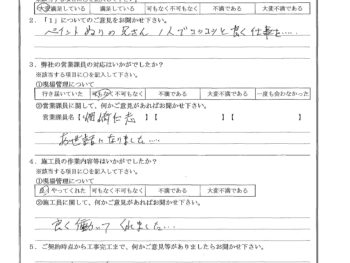 大変満足している 満足している 可もなく不可もなく 不満である 大変不満である
2．「1」についてのご意見をお聞かせ下さい。
ペイントぬりの兄さん 1人でコツコツと良く仕事を……
3．弊社の営業課員の対応はいかがでしたか？
※該当する項目に○を記入して下さい。
①現場管理について
行き届いていた 可もなく不可もなく 不満である 大変不満である 一度も会わなかった
②営業課員に関して、何かご意見があればお聞かせ下さい。
営業課員名【 】【 】【 】
お世話になりました……
4．施工員の作業内容等はいかがでしたか？
※該当する項目に○を記入して下さい。
①現場管理について
良くやってくれた 可もなく不可もなく 不満である 大変不満である
②施工員に関して、何かご意見があればお聞かせ下さい。
良く働いてくれました……
5．ご契約時点から工事完工まで、何かご意見等がありましたらお聞かせ下さい。